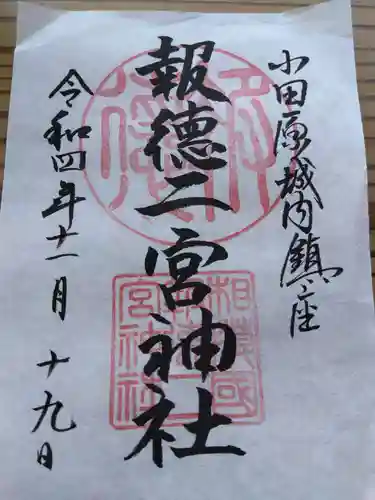 小田原城内鎮座
報徳二宮神社
令和四年十一月 十九日
相模國
報徳二
宮神社